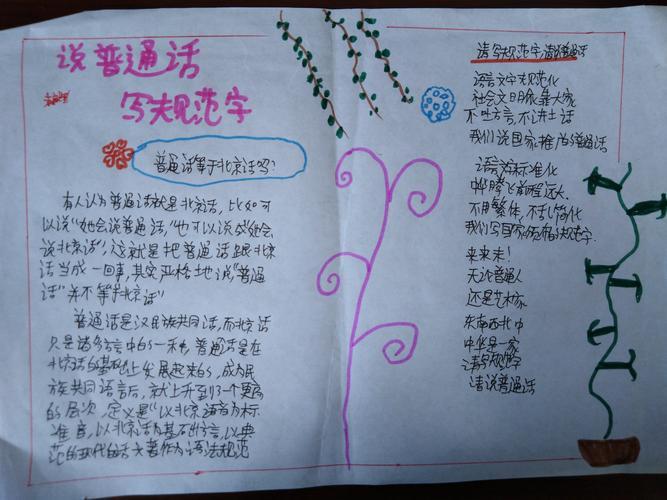 说普通话
写规范字
普通话等于北京话吗?
有人认为普通话就是北京话,比如可
以说"她会说普通话,"也可以说成"她会
说北京话",这就是把普通话跟北京
话当成一回事,其实严格地说,"普通
话"并不等于北京话"
普通话是汉民族共同话,而北京话
只是诸多方言中的一种,普通话是在
北京话的基础上发展起来的,成为民
族共同语言后,就上升到了一个更高
的层次,定义是"以北京语音为标
准音,以北京话为基础方言,以典
范的现代的话文著作为语法规范
请写规范字,请说普通话
语言文字规范化
社会文明依靠大家
不吐方言,不讲土话
我们说国家推广的普通话
语言文标准化
中华腾飞前程远大
不用繁体,不乱简化
我们写国家颁布的规范字.
来来来!
无论普通人
还是艺术家
东南西北中
中华是一家
请写规范字
请说普通话